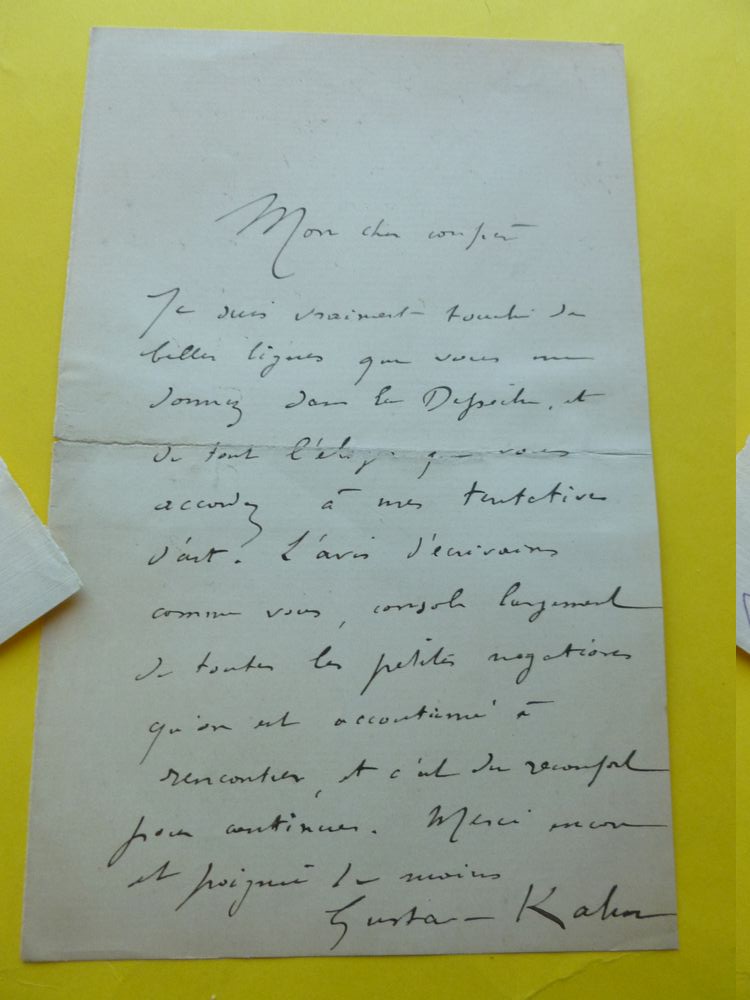 Mon cher confrère
Je suis vraiment touché des
belles lignes que vous me
donnez dans la Dépêche, et
de tout l'éloge que vous
accordez à mes tentatives
d'art. L'avis d'écrivains
comme vous, console largement
de toutes les petites negations
qu'on est accoutumé à
rencontrer, et c'est du reconfort
pour continuer. Merci encore
et poignée de mains
Gustave Kahn